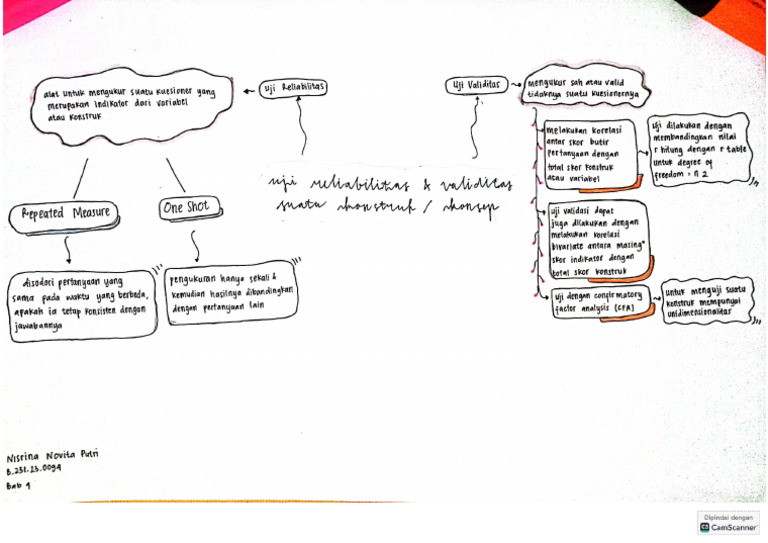 uji Reliabilitas
alat untuk mengukur suatu kuesioner yang
merupakan indikator dari variabel
atau konstruk
Repeated Measure
One Shot
disodori pertanyaan yang
sama pada waktu yang berbeda,
apakah ia tetap konsisten dengan
jawabannya
pengukuran hanya sekali &
kemudian hasilnya dibandingkan
dengan pertanyaan lain
uji reliabilitas & validitas
suatu konstruk / konsep
Uji Validitas
mengukur sah atau valid
tidaknya suatu kuesionernya
melakukan korelasi
antar skor butir
pertanyaan dengan
total skor konstruk
atau variabel
uji dilakukan dengan
membandingkan nilai
r hitung dengan r table
untuk degree of
freedom = n 2
uji validasi dapat
juga dilakukan dengan
melakukan korelasi
bivariate antara masing"
skor indikator dengan
total skor konstruk
uji dengan confirmatory
factor analysis (CFA)
untuk menguji suatu
konstruk mempunyai
unidimensionalitas
Nisrina Novita Putri
B.231.23.0094
Bab 4
Dipindai dengan
CS CamScanner